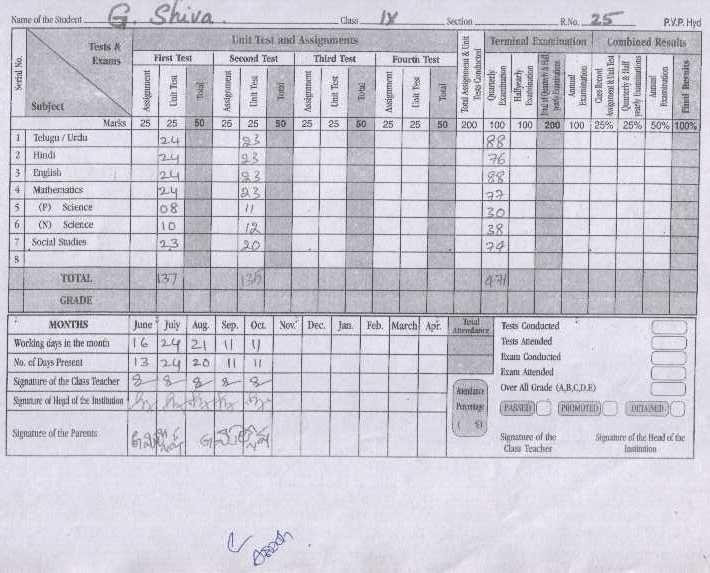 Name of the Student G. Shiva. Class IX Section R.No. 25 P.V.P. Hyd
Serial No. Tests & Exams Subject Unit Test and Assignments Total Assignment & Unit Tests Conducted Terminal Examination Combined Results
First Test Second Test Third Test Fourth Test
Assignment Unit Test Total Assignment Unit Test Total Assignment Unit Test Total Assignment Unit Test Total Quarterly Examination Halfyearly Examination Total of Quarterly & Half yearly Examinations Annual Examination Class Record Assignment & Unit Test Quarterly & Half yearly Examinations Annual Examination Final Results
Marks 25 25 50 25 25 50 25 25 50 25 25 50 200 100 100 200 100 25% 25% 50% 100%
1 Telugu / Urdu 24 23 88
2 Hindi 24 23 76
3 English 24 23 88
4 Mathematics 24 23 77
5 (P) Science 08 11 30
6 (N) Science 10 12 38
7 Social Studies 23 20 74
8
TOTAL 137 135 471
GRADE
MONTHS June July Aug. Sep. Oct. Nov. Dec. Jan. Feb. March Apr. Total Attendance
Working days in the month 16 24 21 11 11
No. of Days Present 13 24 20 11 11
Signature of the Class Teacher
Signature of Head of the Institution
Signature of the Parents
Attendance Percentage ( %)
Tests Conducted
Tests Attended
Exam Conducted
Exam Attended
Over All Grade (A,B,C,D,E)
PASSED PROMOTED DETAINED
Signature of the Class Teacher Signature of the Head of the Institution